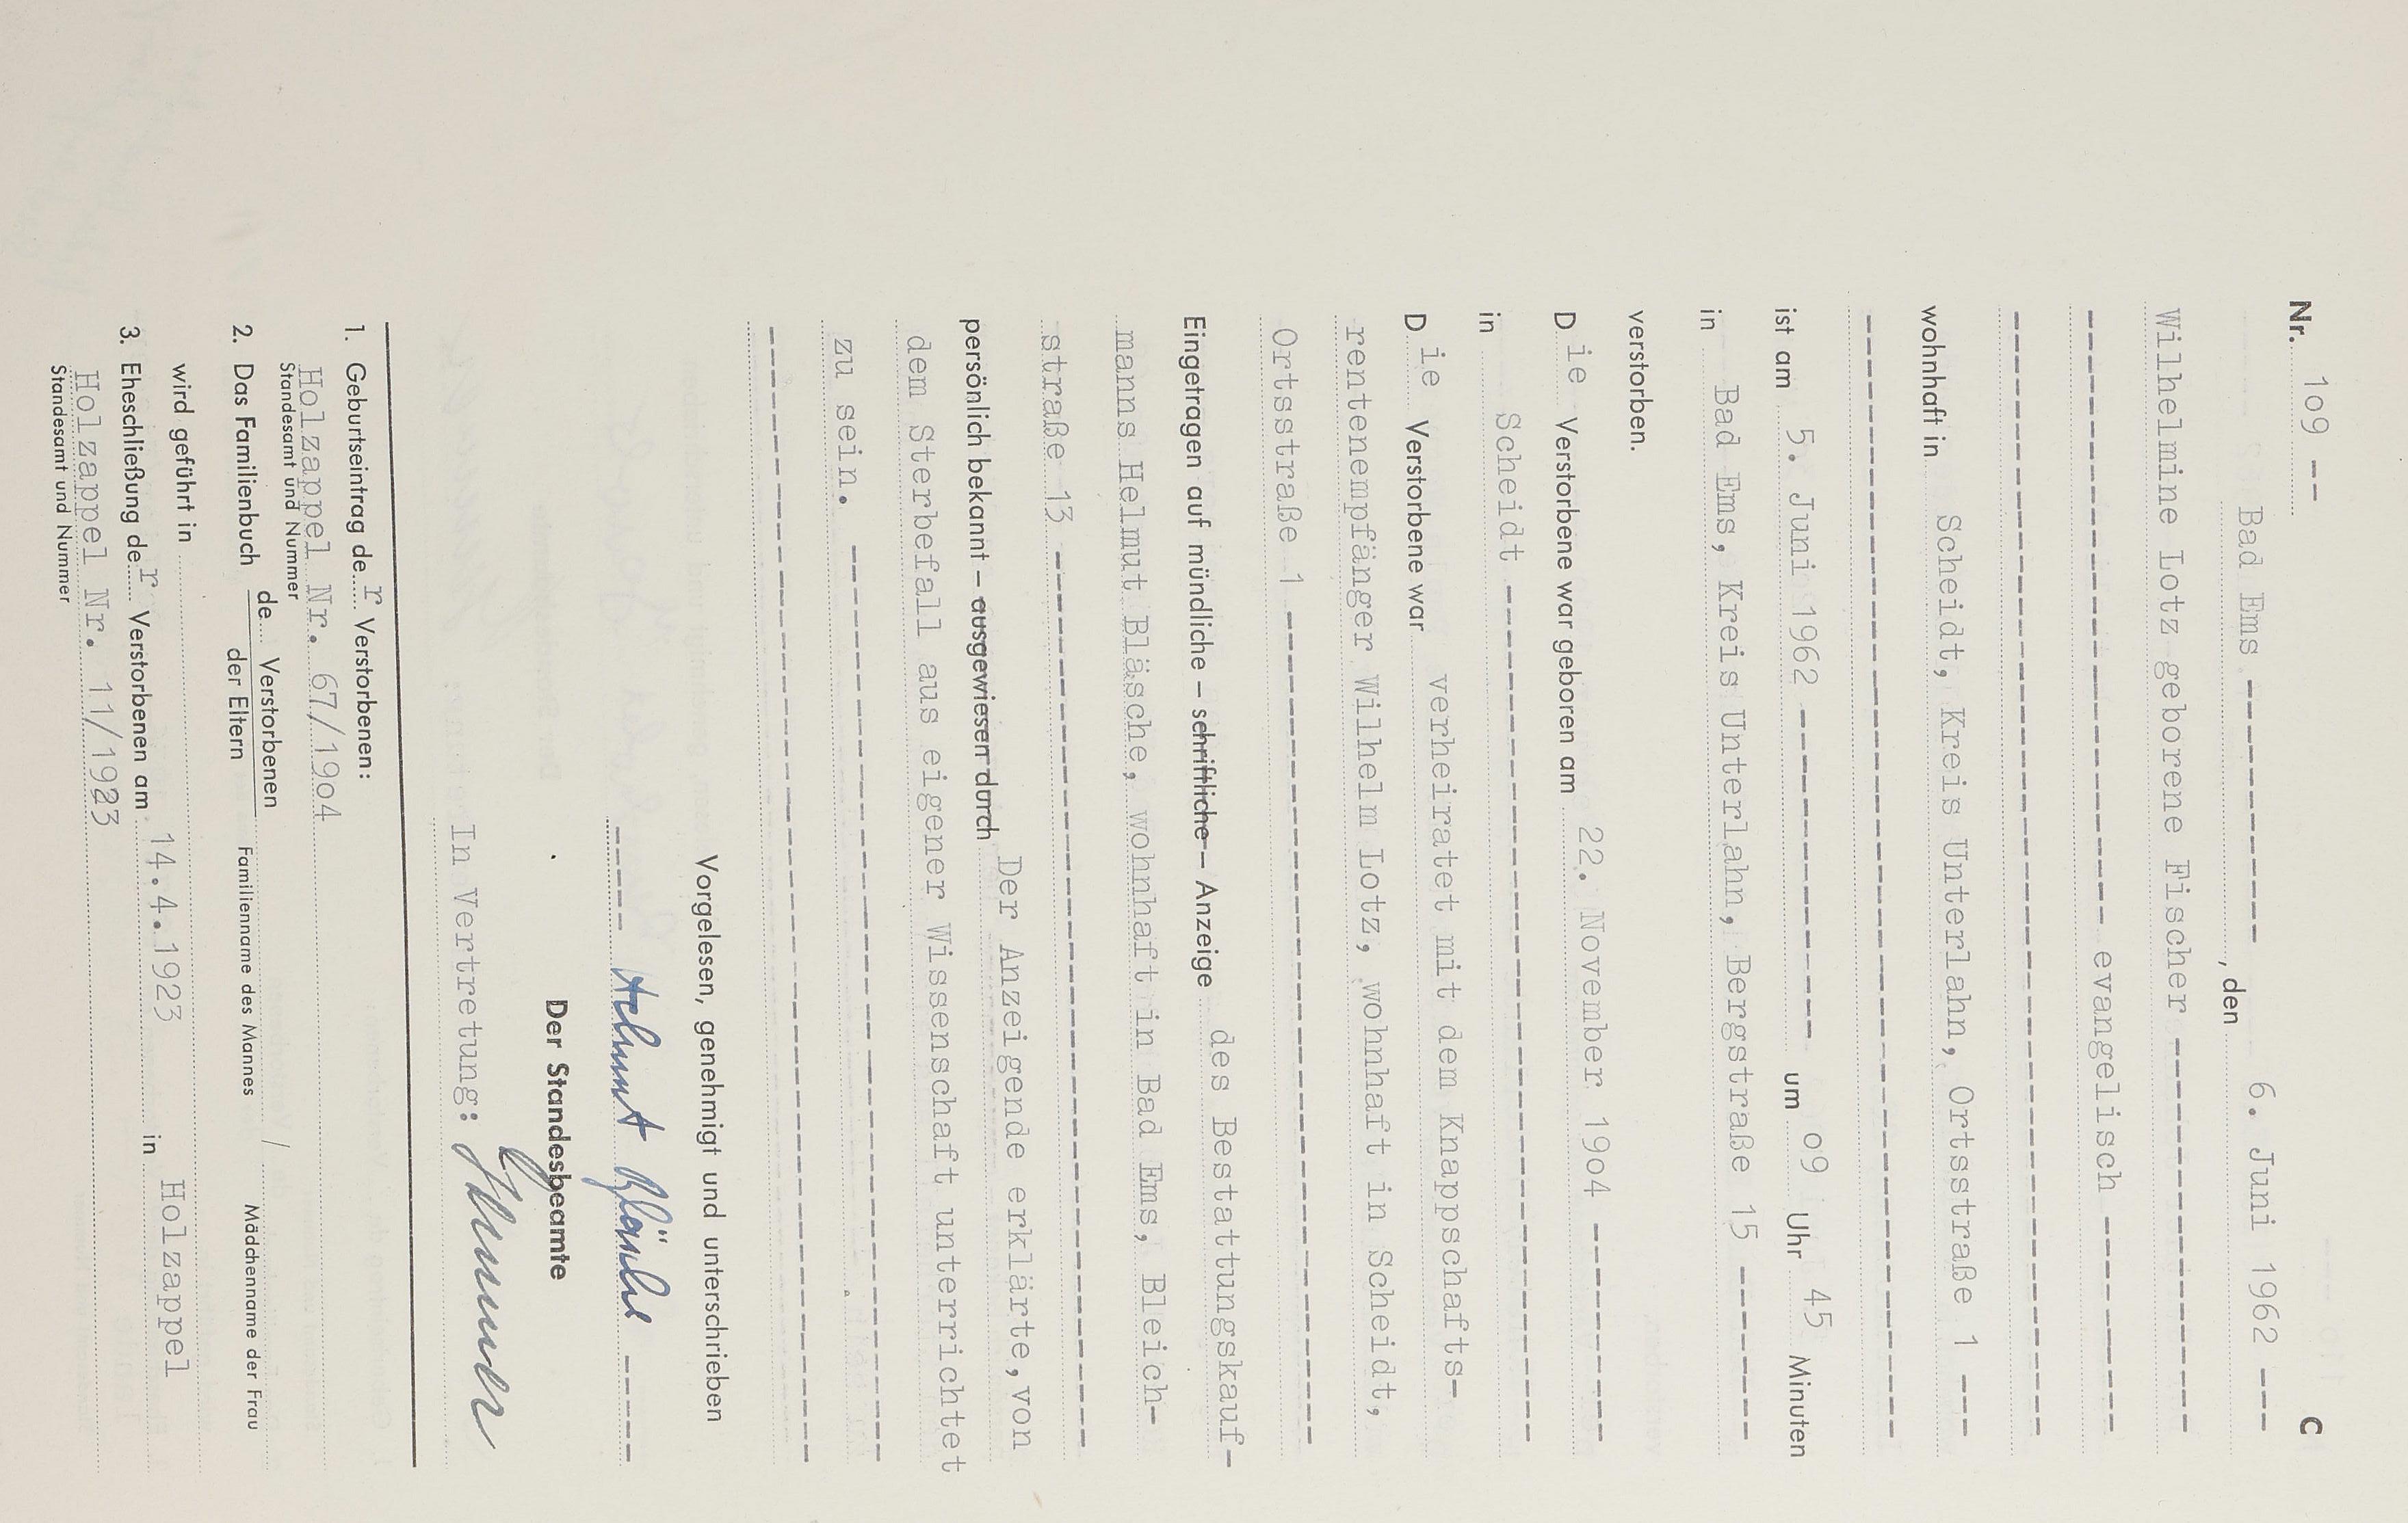 Nr. 1o9 -- C
Bad Ems ------------, den 6. Juni 1962 ---
Wilhelmine Lotz geborene Fischer ------------------
---------------------------- evangelisch ----------
---------------------------------------------------
wohnhaft in Scheidt, Kreis Unterlahn, Ortsstraße 1 ---
---------------------------------------------------
ist am 5. Juni 1962 --------------- um o9 Uhr 45 Minuten
in Bad Ems, Kreis Unterlahn, Bergstraße 15 --------
verstorben.
Die Verstorbene war geboren am 22. November 19o4 ----------
in Scheidt ---------------------------------------
Die Verstorbene war verheiratet mit dem Knappschafts-
rentenempfänger Wilhelm Lotz, wohnhaft in Scheidt,
Ortsstraße 1 --------------------------------------
Eingetragen auf mündliche – schriftliche – Anzeige des Bestattungskauf-
manns Helmut Bläsche, wohnhaft in Bad Ems, Bleich-
straße 13 -----------------------------------------
persönlich bekannt – ausgewiesen durch Der Anzeigende erklärte, von
dem Sterbefall aus eigener Wissenschaft unterrichtet
zu sein. ------------------------------------------
---------------------------------------------------
Vorgelesen, genehmigt und unterschrieben
----- Helmut Bläsche -----
Der Standesbeamte
In Vertretung:
1. Geburtseintrag der Verstorbenen:
Holzappel Nr. 67/19o4
Standesamt und Nummer
2. Das Familienbuch de Verstorbenen
der Eltern
/
Familienname des Mannes Mädchenname der Frau
wird geführt in
3. Eheschließung der Verstorbenen am 14.4.1923 in Holzappel
Holzappel Nr. 11/1923
Standesamt und Nummer